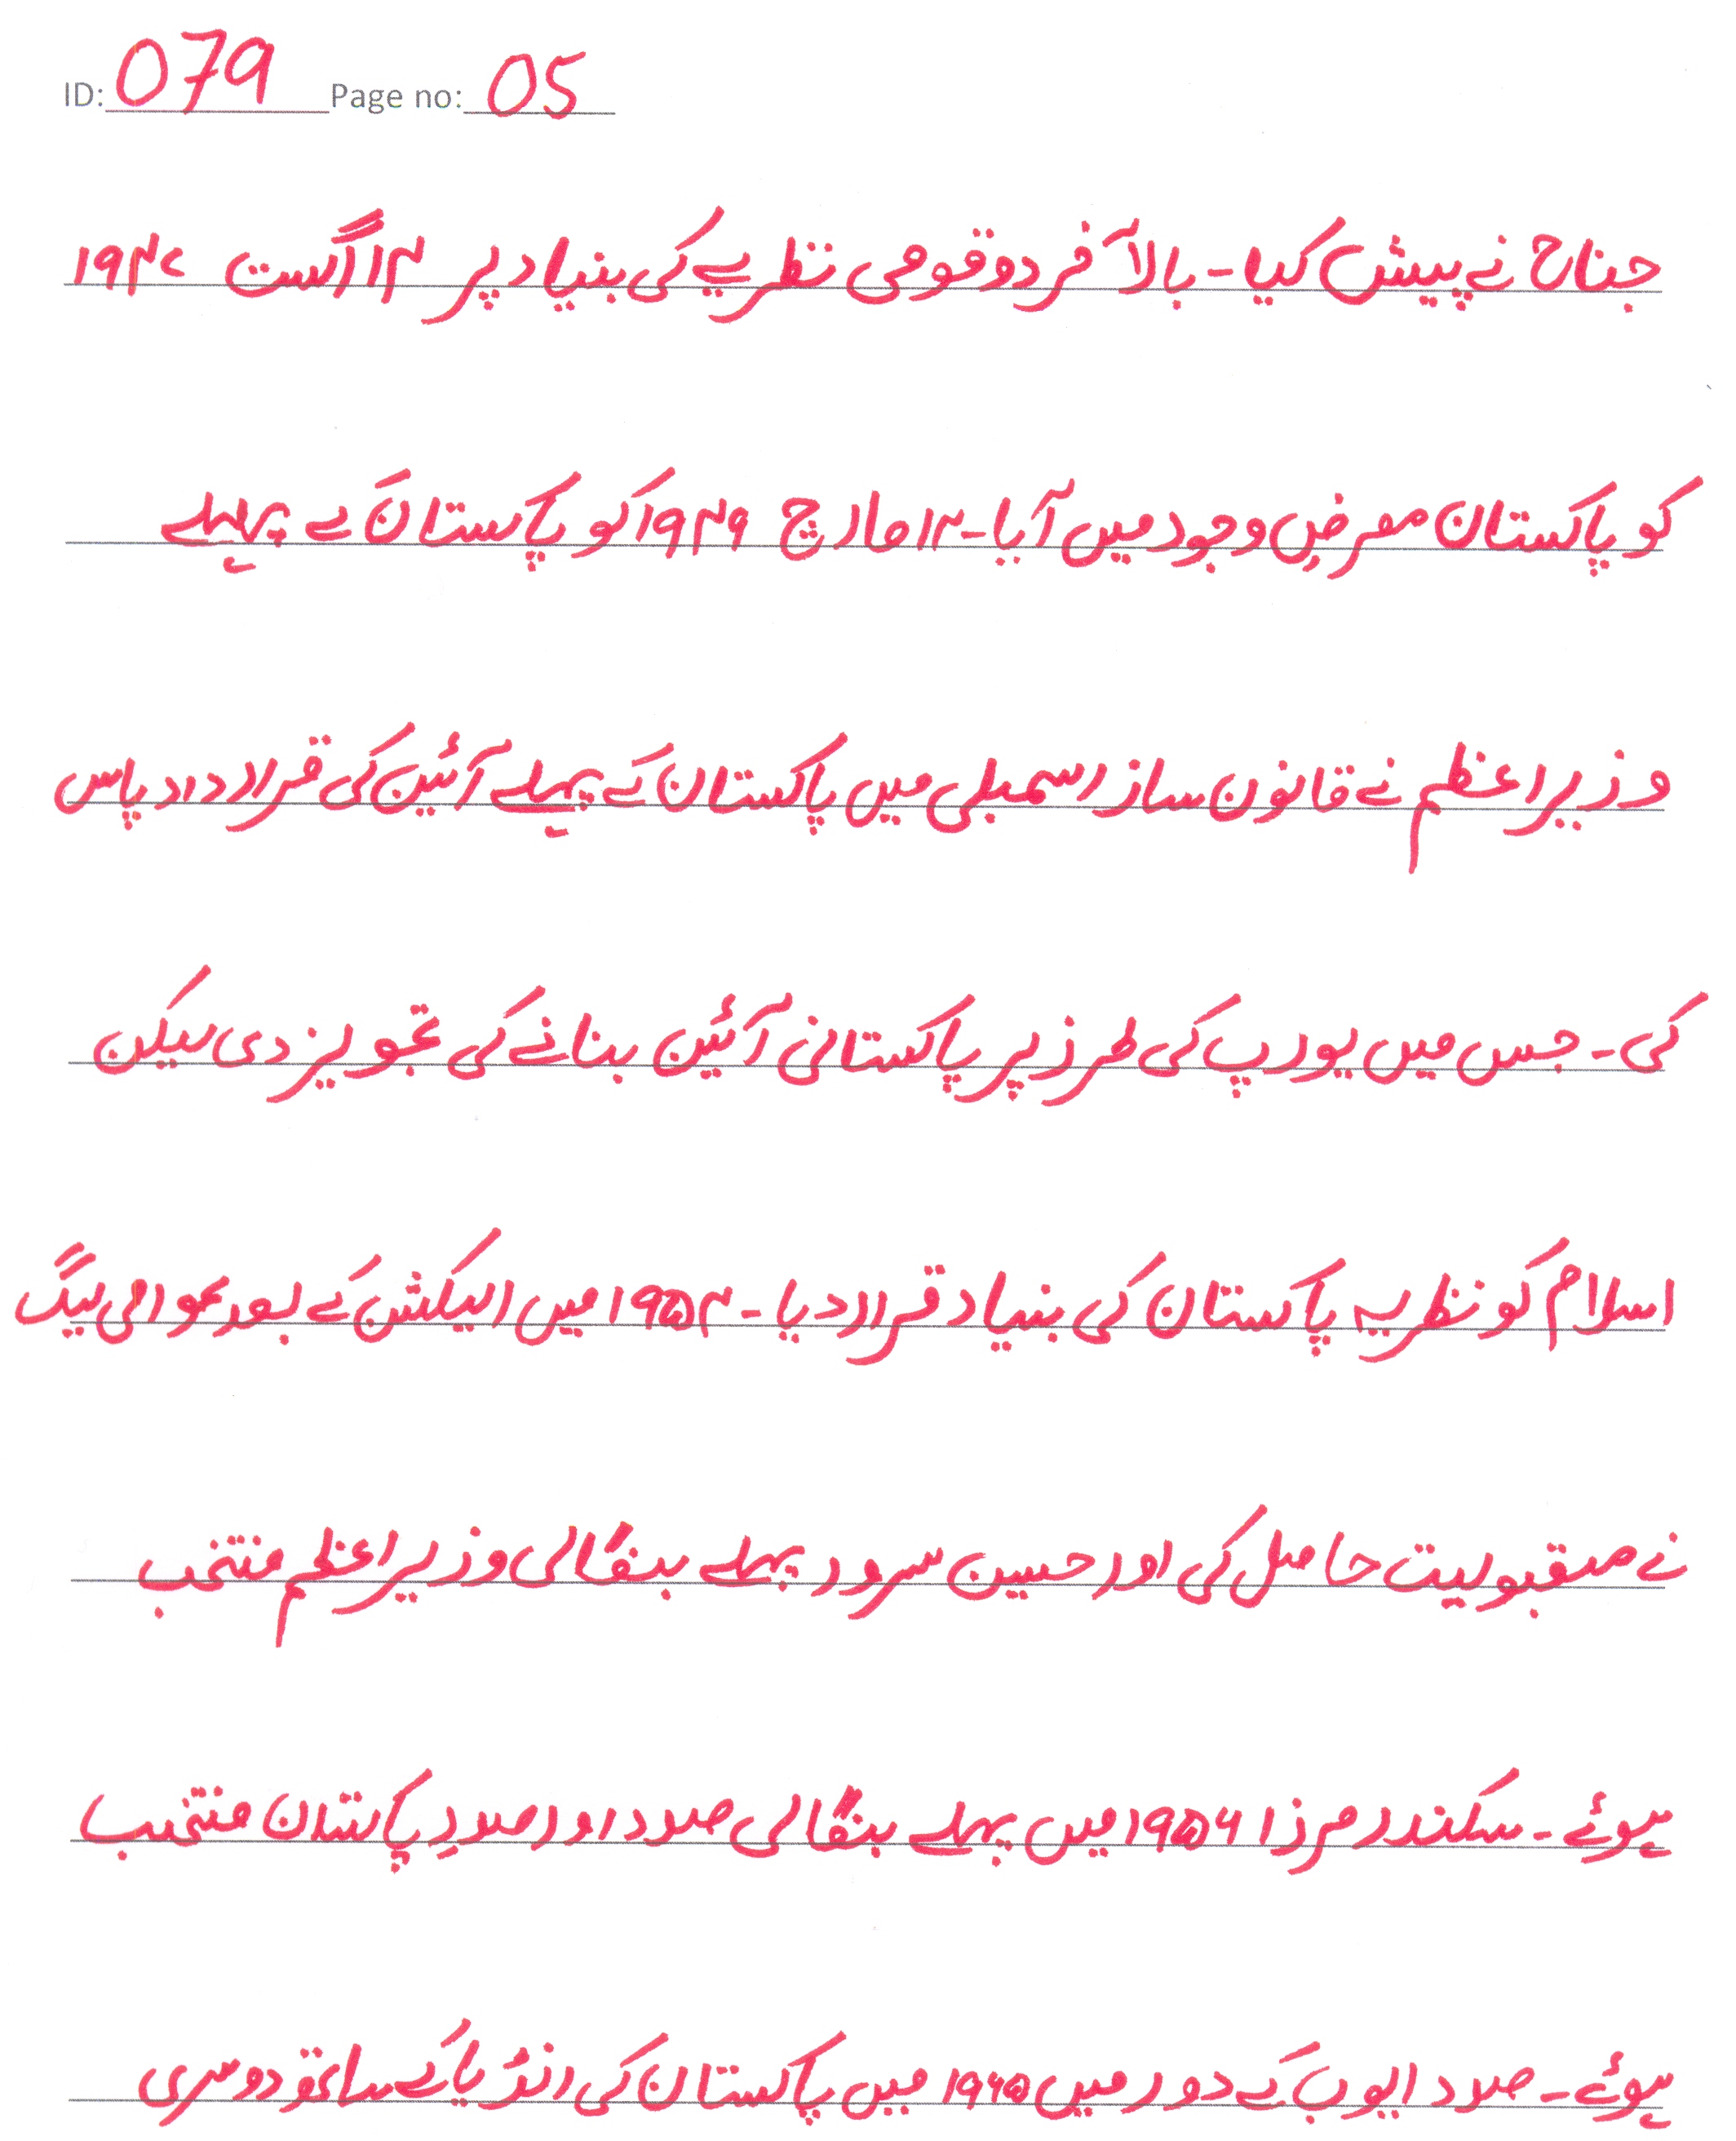 ID: 079 Page no: 05
جناح نے پیش کیا۔ بالآخر دوقومی نظریے کی بنیاد پر ۱۴ اگست ۱۹۴۷
کو پاکستان معرضِ وجود میں آیا۔ ۱۲ مارچ ۱۹۴۹ کو پاکستان کے پہلے
وزیراعظم نے قانون ساز اسمبلی میں پاکستان کے پہلے آئین کی قرارداد پاس
کی۔ جس میں یورپ کی طرز پر پاکستانی آئین بنانے کی تجویز دی لیکن
اسلام کو نظریہ پاکستان کی بنیاد قرار دیا۔ ۱۹۵۴ میں الیکشن کے بعد عوامی لیگ
نے مقبولیت حاصل کی اور حسین سرور پہلے بنگالی وزیراعظم منتخب
ہوئے۔ سکندر مرزا ۱۹۵۶ میں پہلے بنگالی صدر اور صدرِ پاکستان منتخب
ہوئے۔ صدر ایوب کے دور میں ۱۹۶۵ میں پاکستان کی انڈیا کے ساتھ دوسری